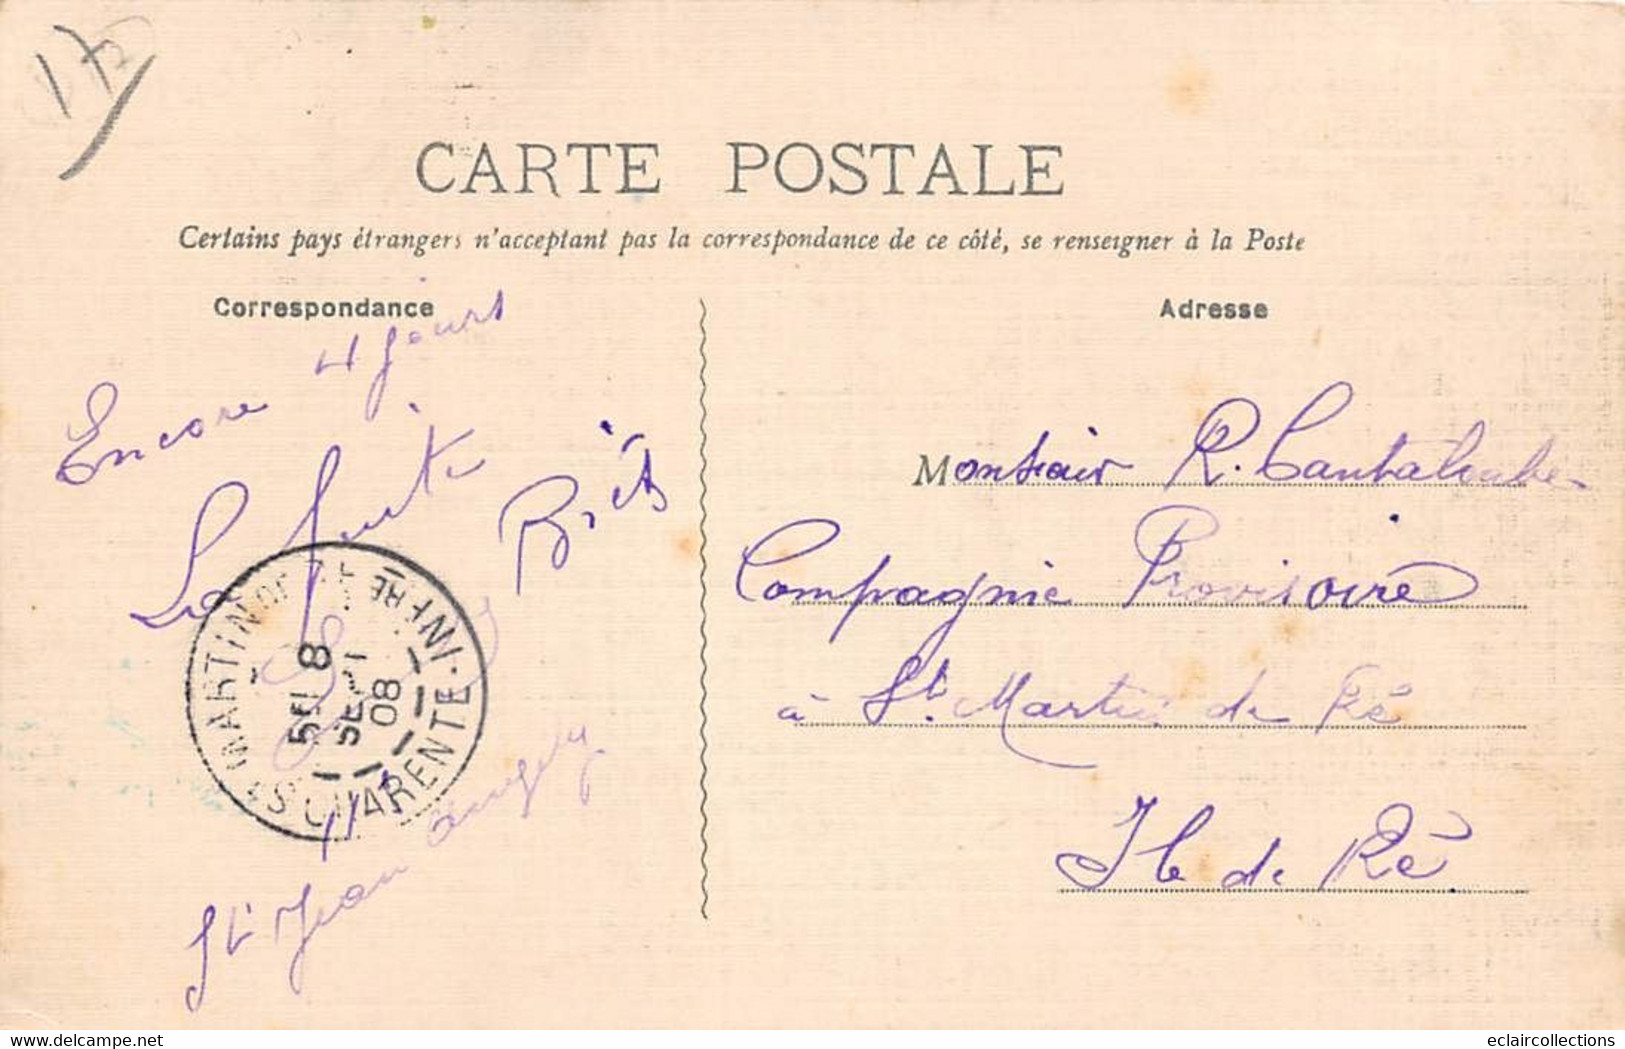 17
CARTE POSTALE
Certains pays étrangers n'acceptant pas la correspondance de ce côté, se renseigner à la Poste
Correspondance
Encore 4 jours
La fuite
St Jean angely
ST MARTIN DE RÉ
CHARENTE-INFRE
8
SEPT
08
Adresse
Monsieur R. Cantaloube
Compagnie Provisoire
à St. Martin de Ré
Ile de Ré.
delcampe.net
eclaircollections